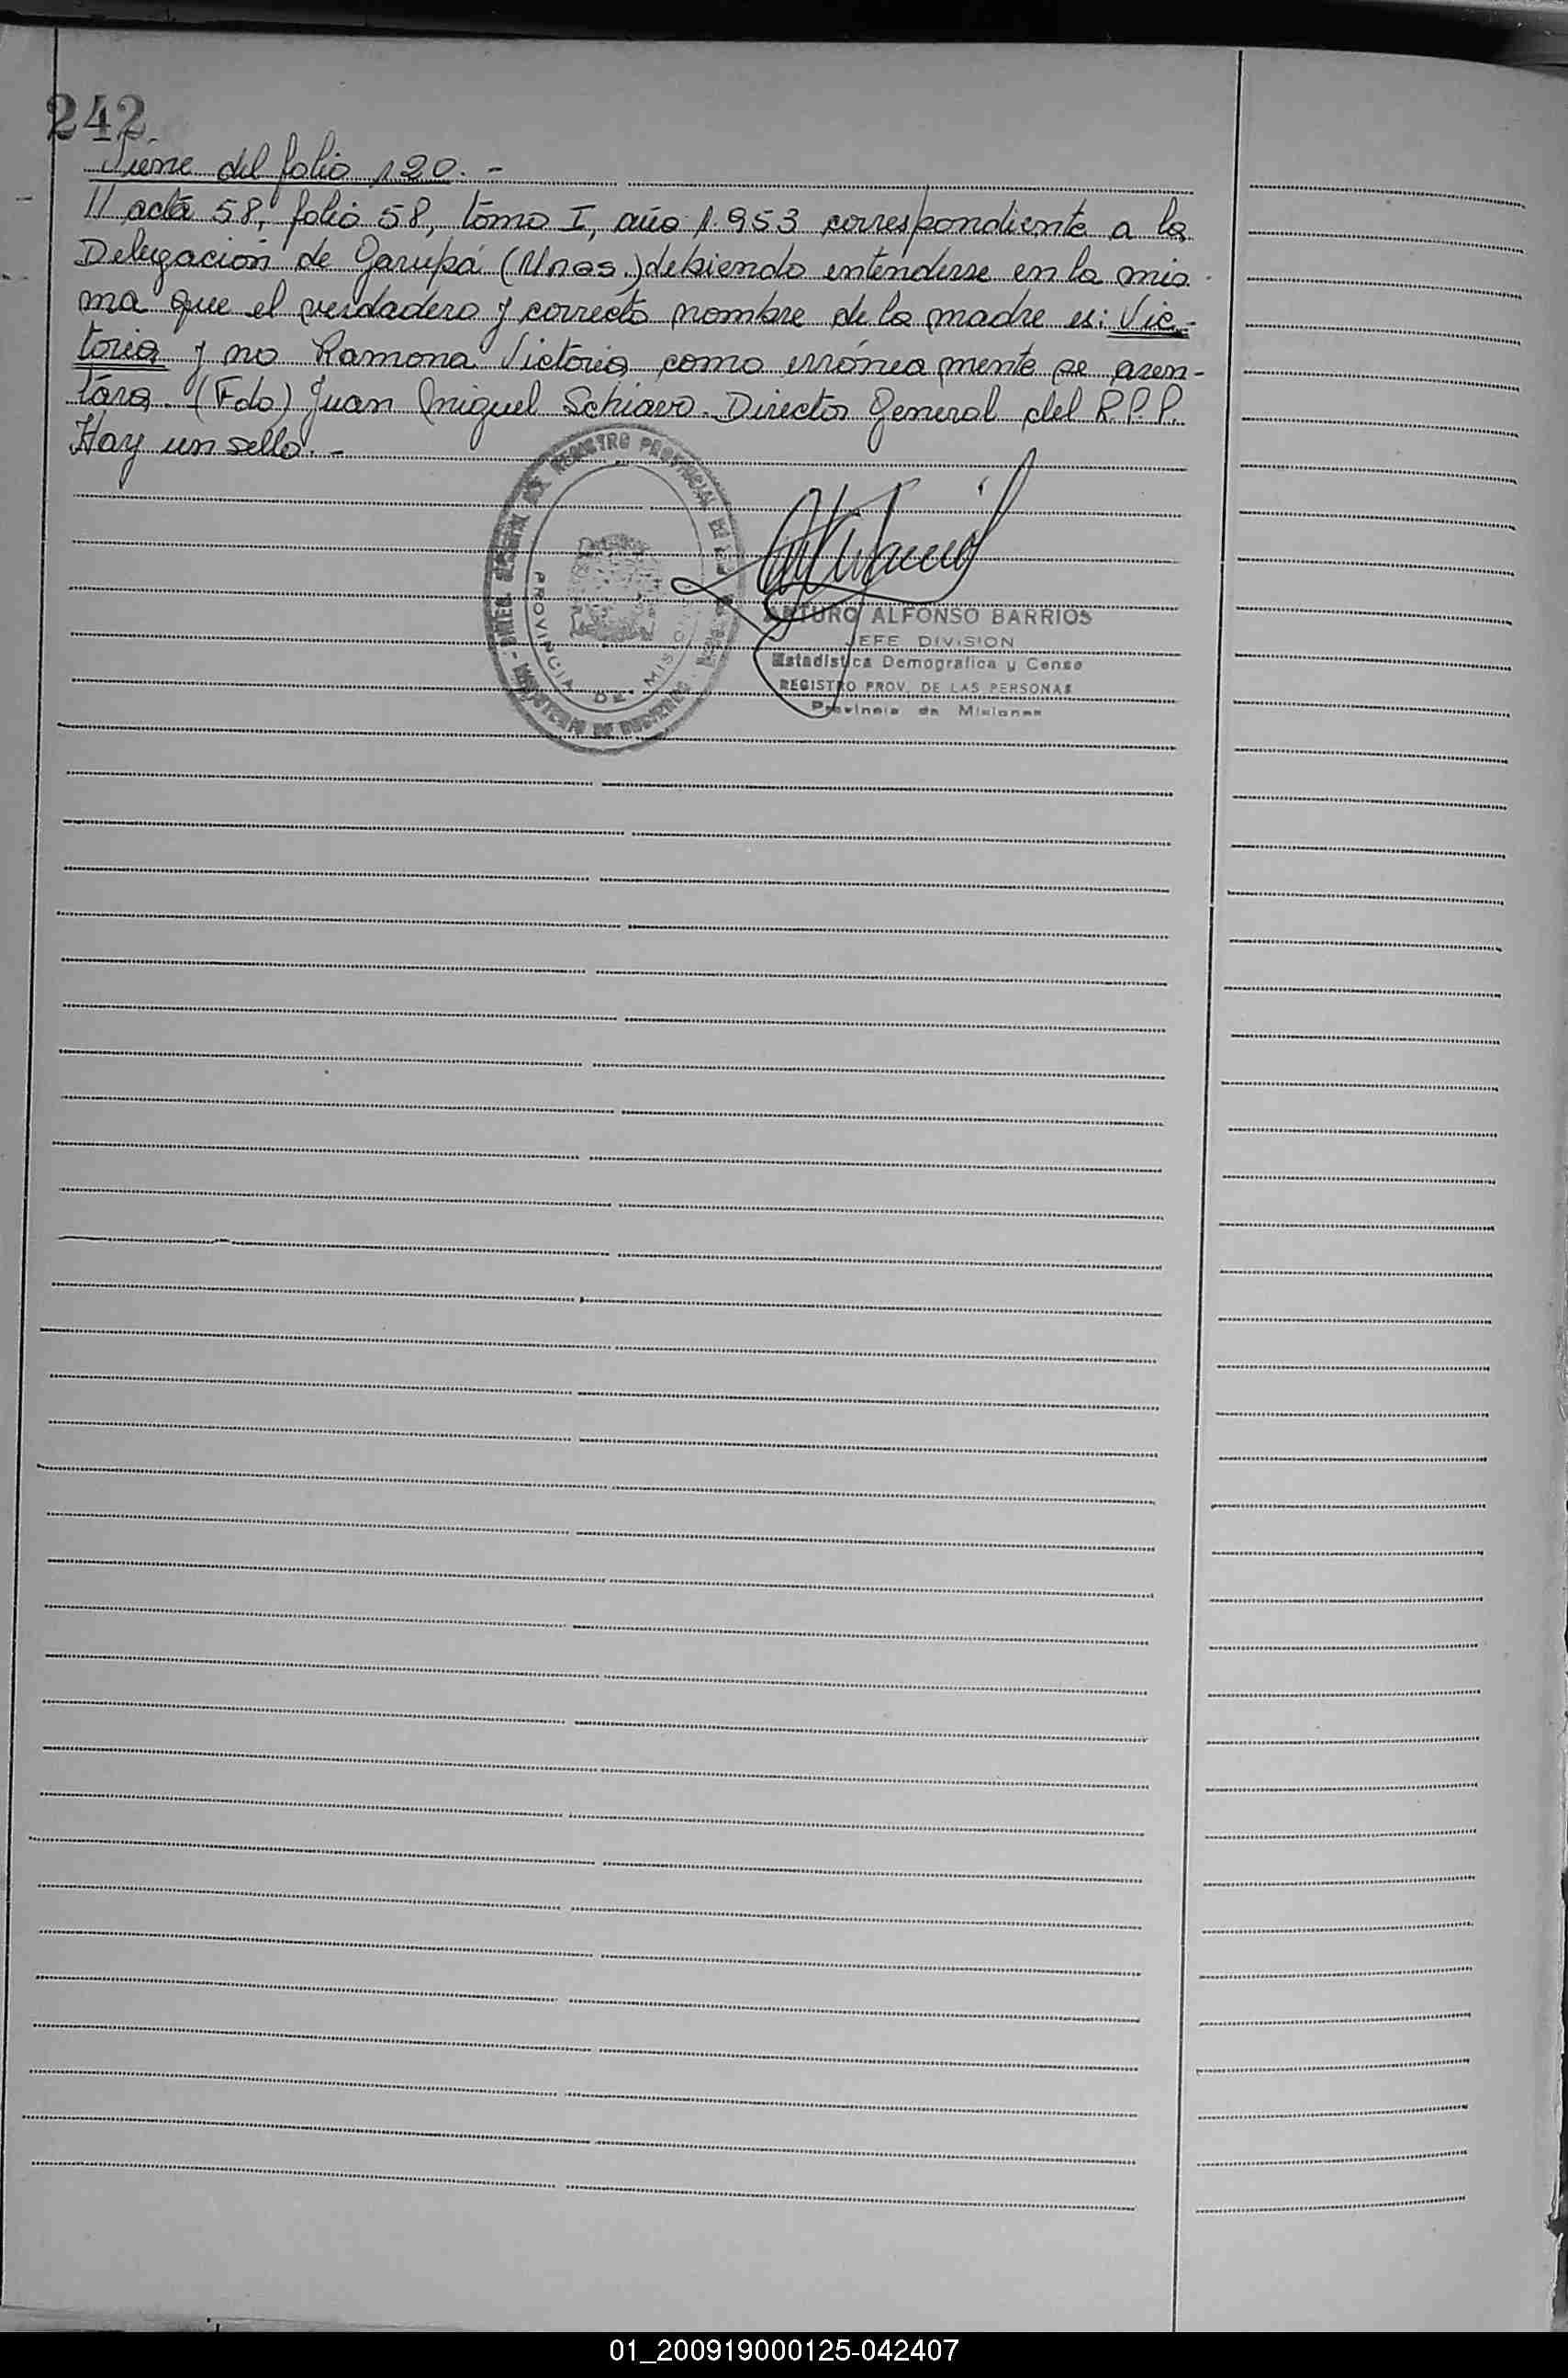 242
Viene del folio 120.-
// acta 58, folio 58, tomo I, año 1.953 correspondiente a la
Delegación de Garupá (Mnes.) debiendo entenderse en la mis-
ma que el verdadero y correcto nombre de la madre es: Vic-
toria y no Ramona Victoria como erróneamente se asen-
tára. (Fdo) Juan Miguel Schiavo. Director General del R.P.P.
Hay un sello.-
REGISTRO PROVINCIAL DE LAS
MINISTERIO DE GOBIERNO
PROVINCIA DE MISIONES
ARTURO ALFONSO BARRIOS
JEFE DIVISION
Estadistica Demografica y Censo
REGISTRO PROV. DE LAS PERSONAS
Provincia de Misiones
01_200919000125-042407